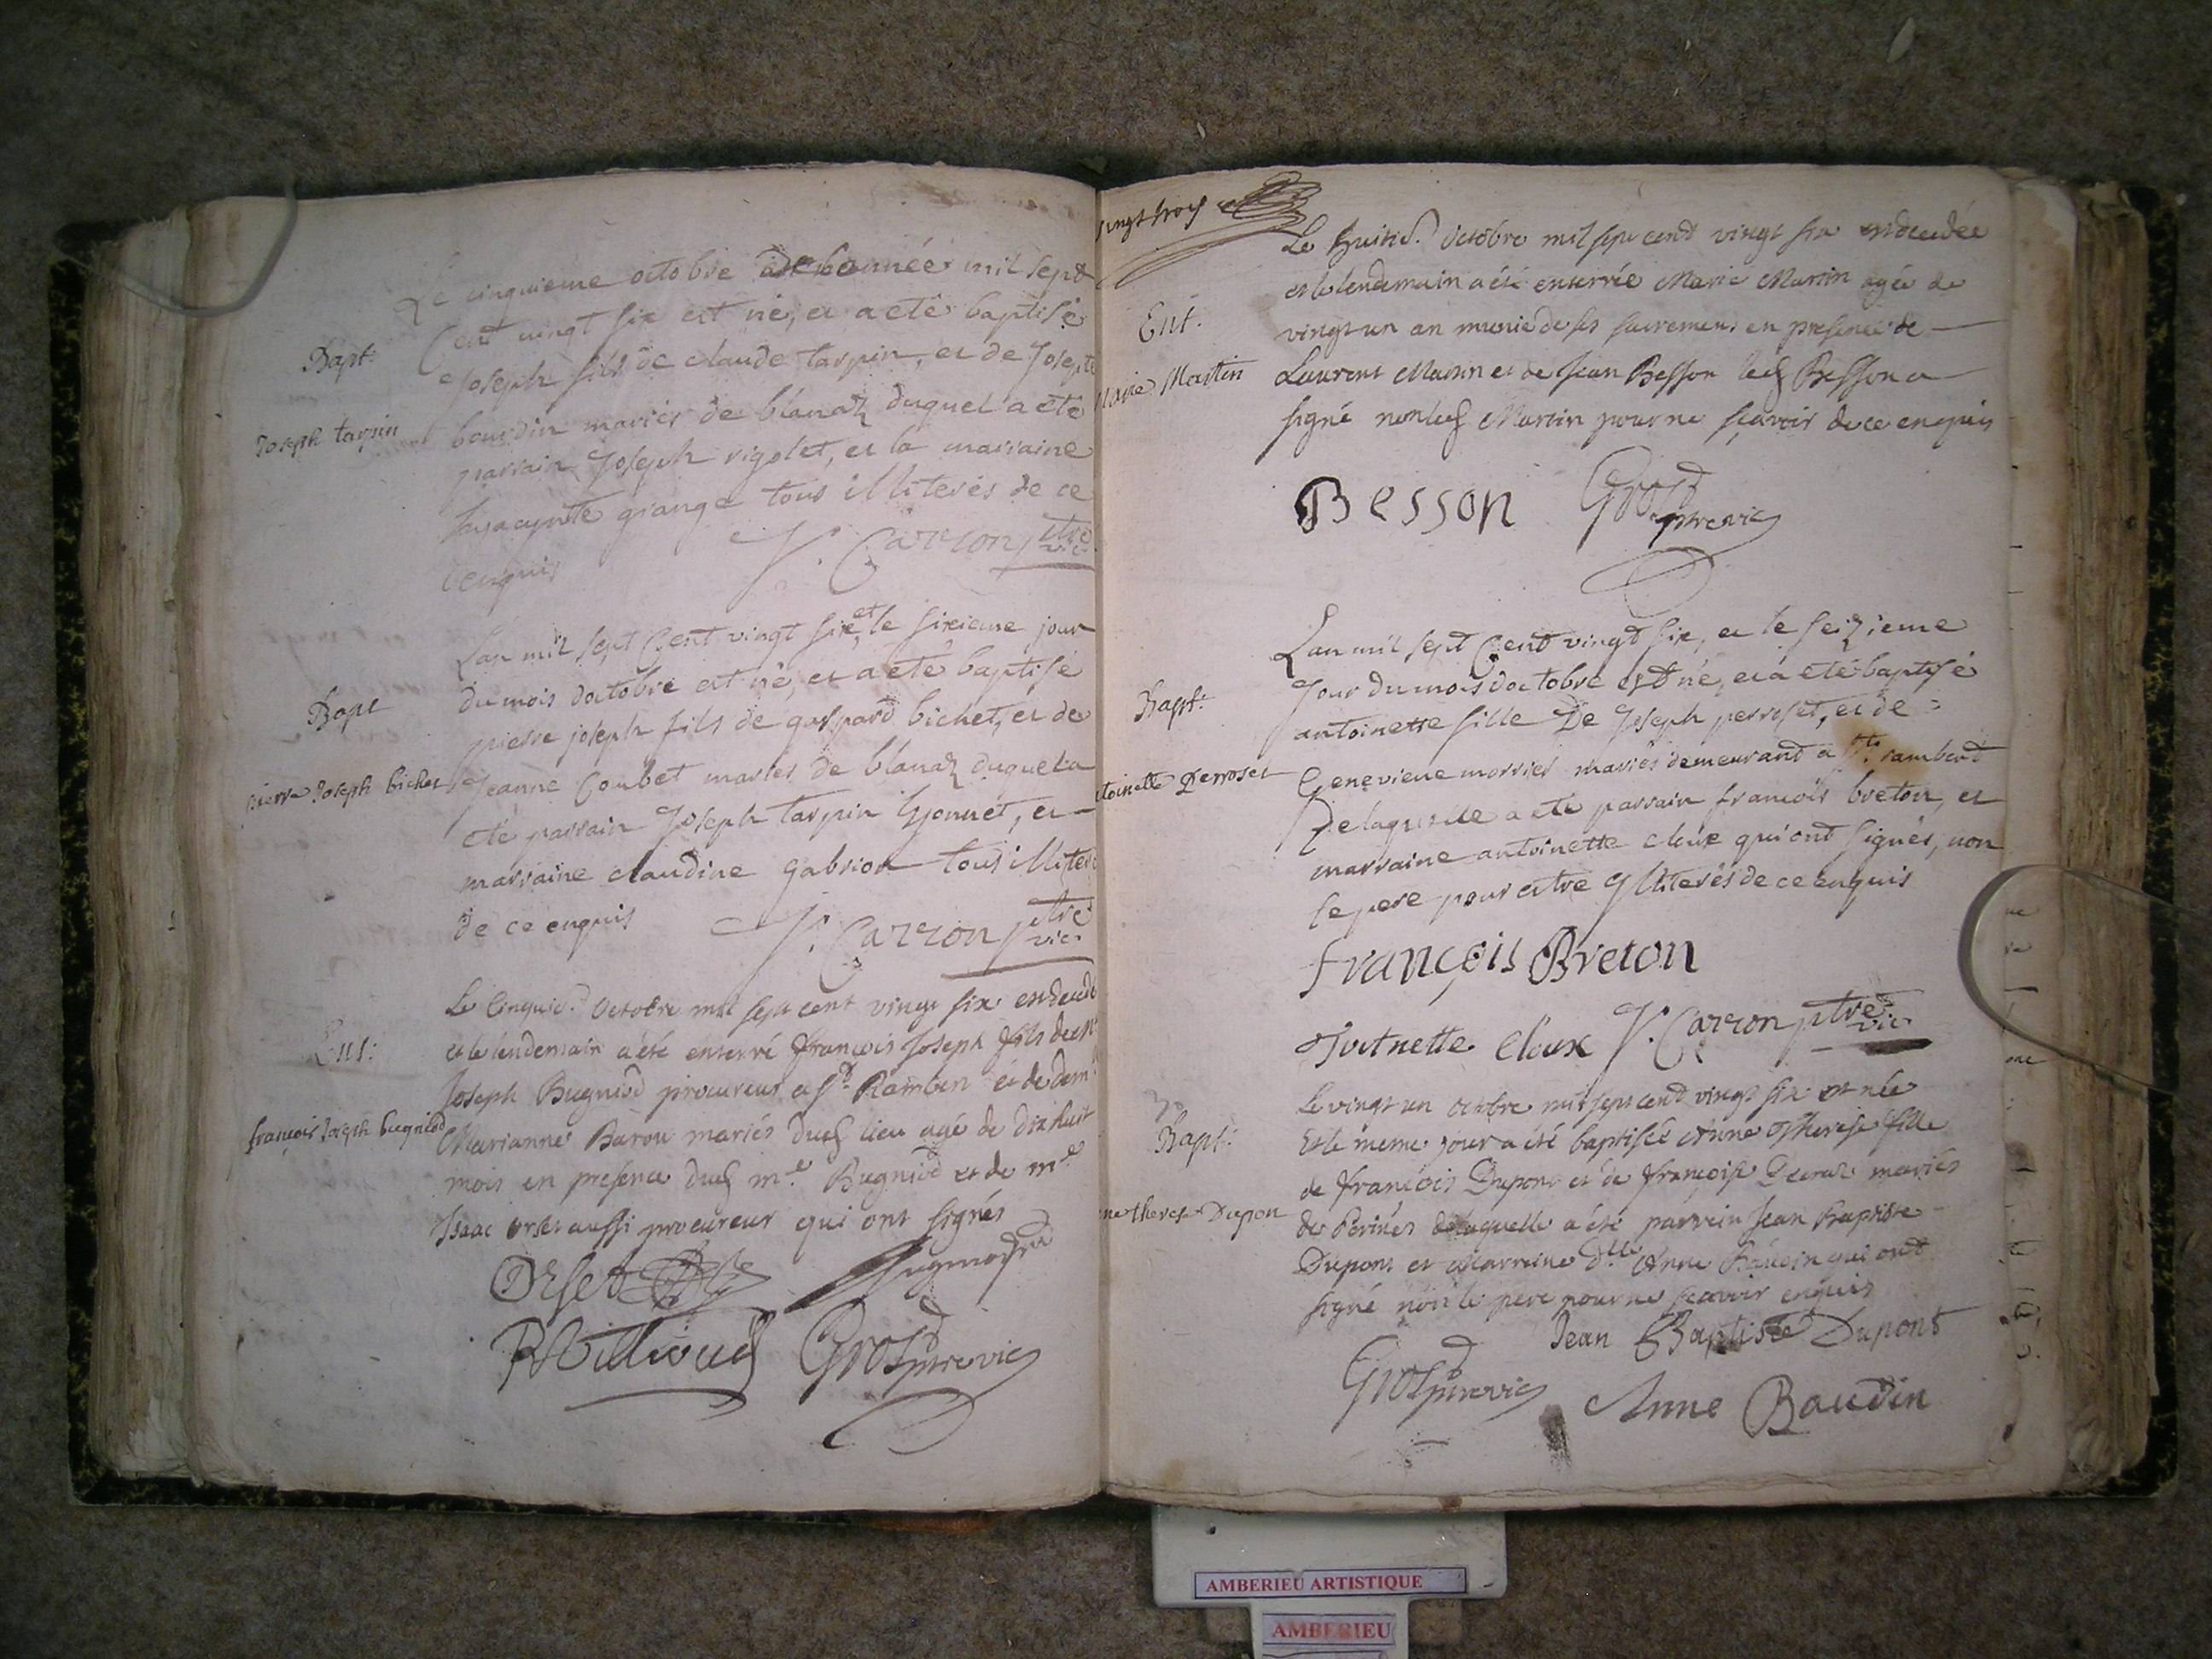 Bapt:
Joseph tarpin
Le cinquieme octobre mil sept
Cent vingt six est né, et a eté baptisé
Joseph fils de claude tarpin, et de Josepte
bourdin mariés de blanaz duquel a eté
parrain Joseph rigolet, et la marraine
hyacynte grange tous illiterés de ce
enquis
J. Carron ptre vic
Bapt
pierre Joseph bichet
Lan mil sept Cent vingt six, et le sixieme jour
du mois doctobre est né, et a eté baptisé
pierre joseph fils de gaspard bichet, et de
Jeanne Coubet mariés de blanaz duquel a
eté parrain Joseph tarpin lyonnet, et
marraine claudine gabrion tous illiter
de ce enquis
J. Carron ptre vic
Ent:
françois Joseph bugniod
Le Cinquie. Octobre mil sept cent vingt six est decedé
et le lendemain a été enterré françois Joseph fils de
Joseph Bugniod procureur a St Rambert et de dem
Marianne Baron mariés dud lieu agé de dixhuit
mois en presence dud me Bugniod et de me
Isaac orset aussi procureur qui ont signés
Orset Bugniod
Grosf ptre vic
vingt trois
Ent.
Marie Martin
Le huitie. Octobre mil sept cent vingt six est decedée
et le lendemain a été enterrée Marie Martin agée de
vingt un an munie de ses sacremens en presence de
Laurent Martin et de Jean Besson led Besson a
signé non led Martin pour ne sçavoir de ce enquis
Besson Grosf ptre vic
Bapt:
toinette Perroset
Lan mil sept Cent vingt six, et le seizieme
Jour du mois doctobre est né, et a eté baptisé
antoinette fille De Joseph perroset, et de
Genevieve morrier mariés demeurand a st. rambert
De laquelle a eté parrain francois breton, et
marraine antoinette cloux qui ont signés, non
le pere pour estre illiterés de ce enquis
françois Breton
Toitnette cloux J. Carron ptre vic
Bapt:
ne therese Dupon
Le vingt un octobre mil sept cent vingt six est née
Et le meme jour a été baptisée Anne Therese fille
de françois Dupont et de françoise mariés
de Perines de laquelle a été parrein Jean Baptiste
Dupont et Marreine Dlle Anne Baudin qui ont
signé non le pere pour ne scavoir enquis
Jean Baptiste Dupont
Grosf ptre vic Anne Baudin
AMBERIEU ARTISTIQUE
AMBERIEU